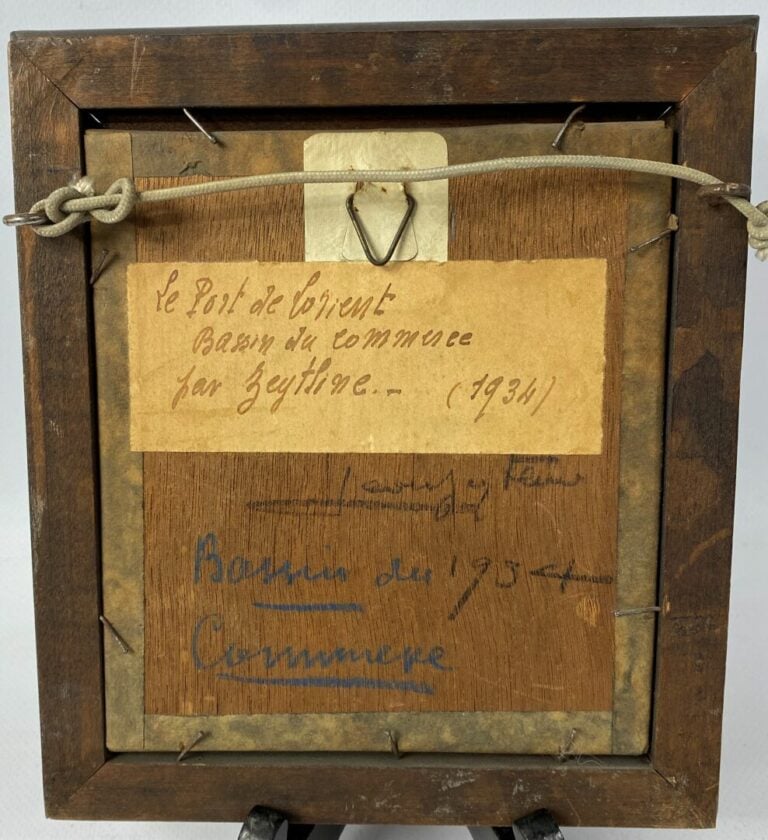 Le Port de Lorient
Bassin du Commerce
par Zeytline. - (1934)
Leon Zeytline
Bassin du 1934
Commerce